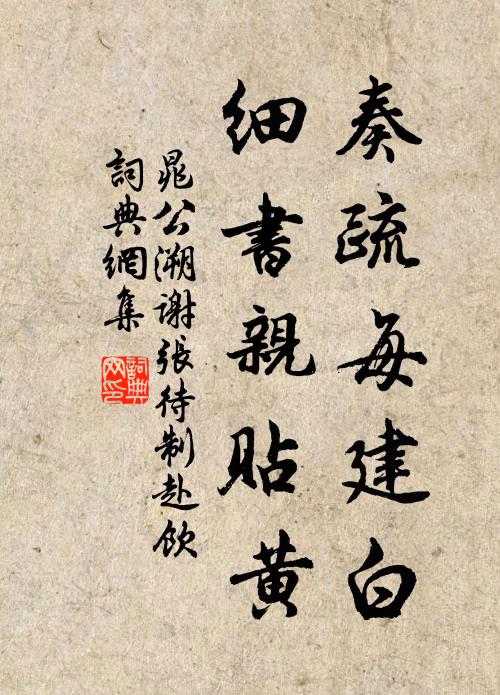 奏疏每建白
細書親貼黃
晁公溯謝張待制赴飲
詞典網集
詞典
网印